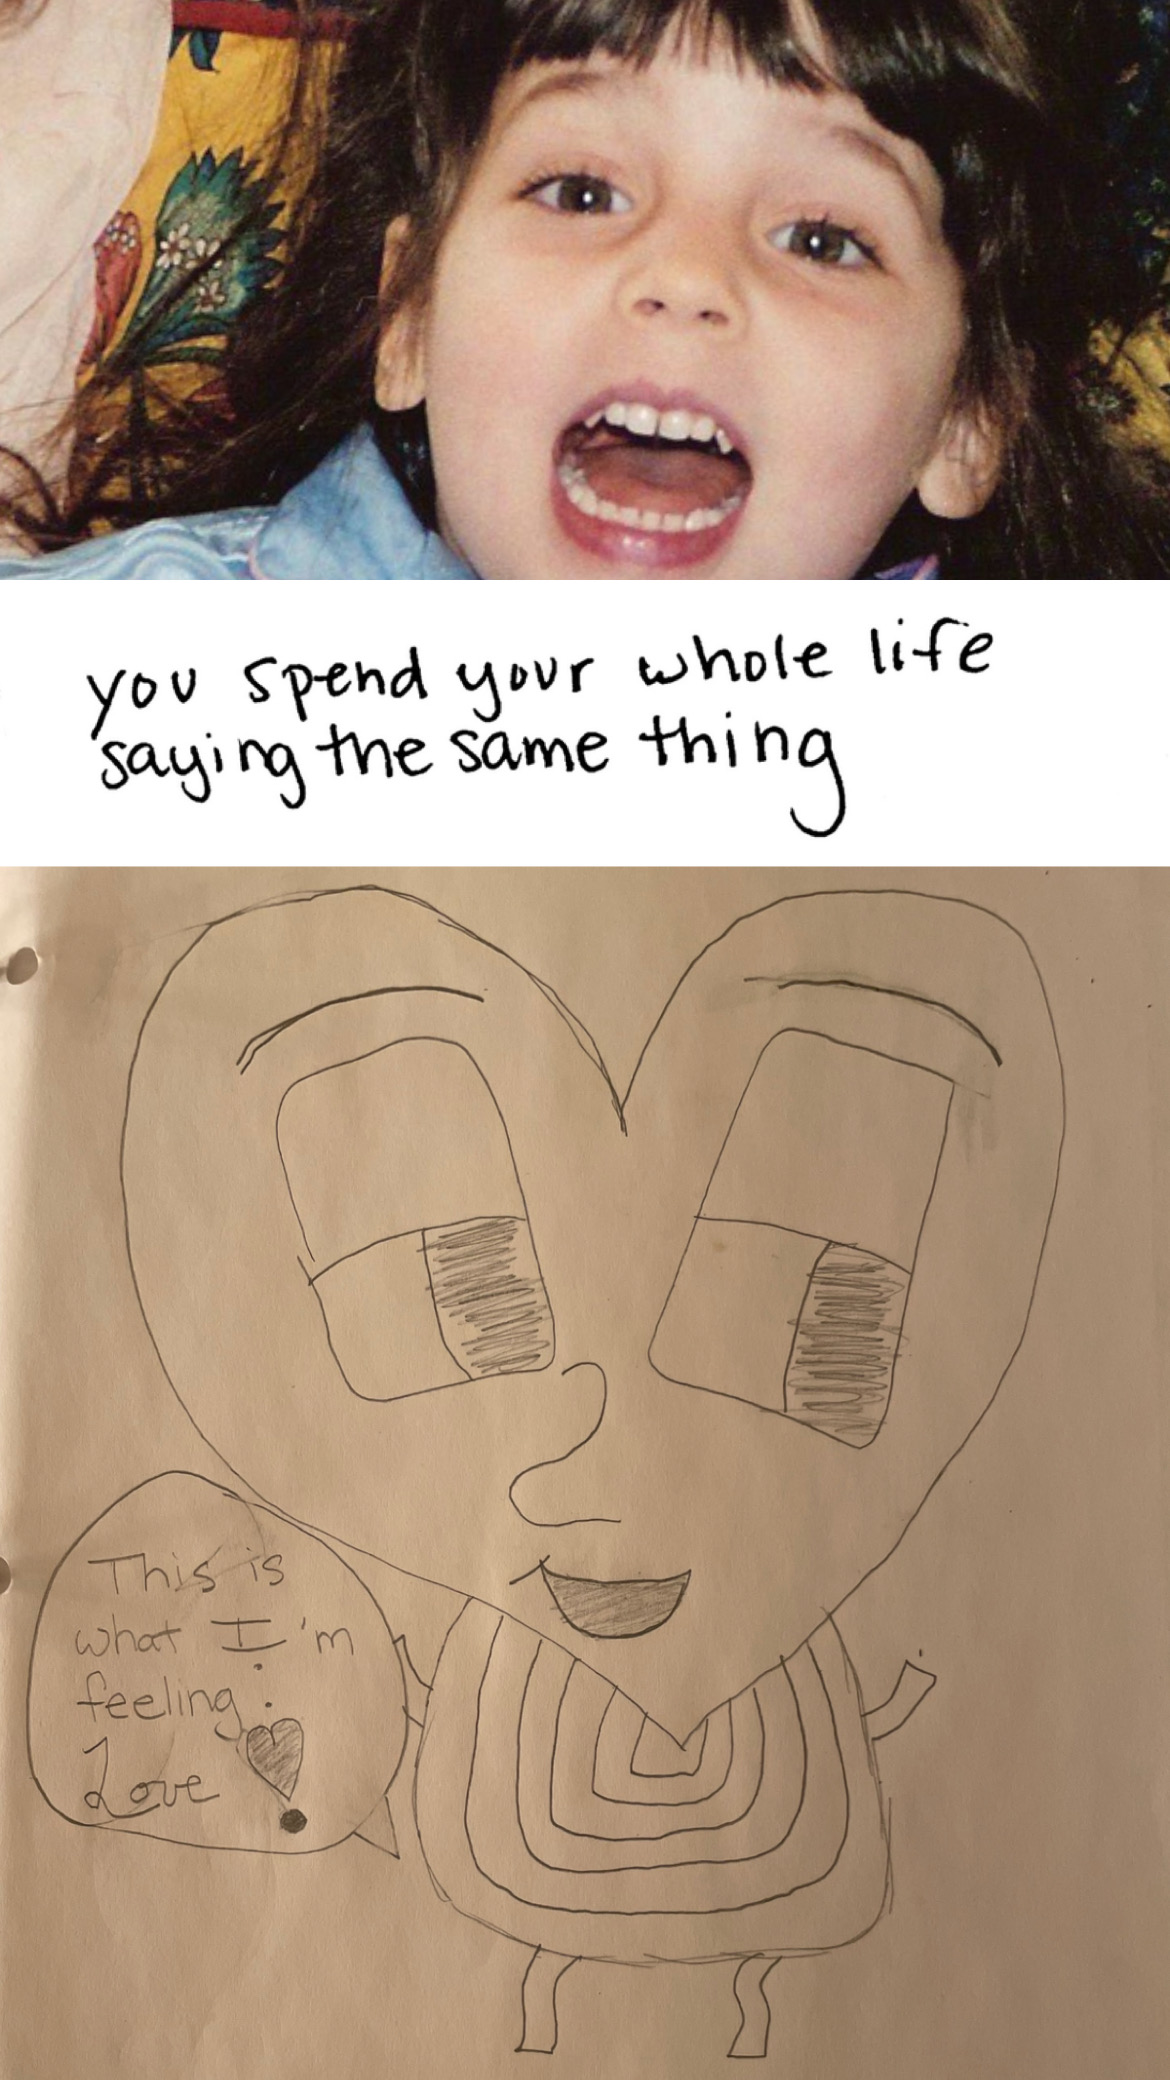 you spend your whole life
saying the same thing
This is
what I'm
feeling:
Love